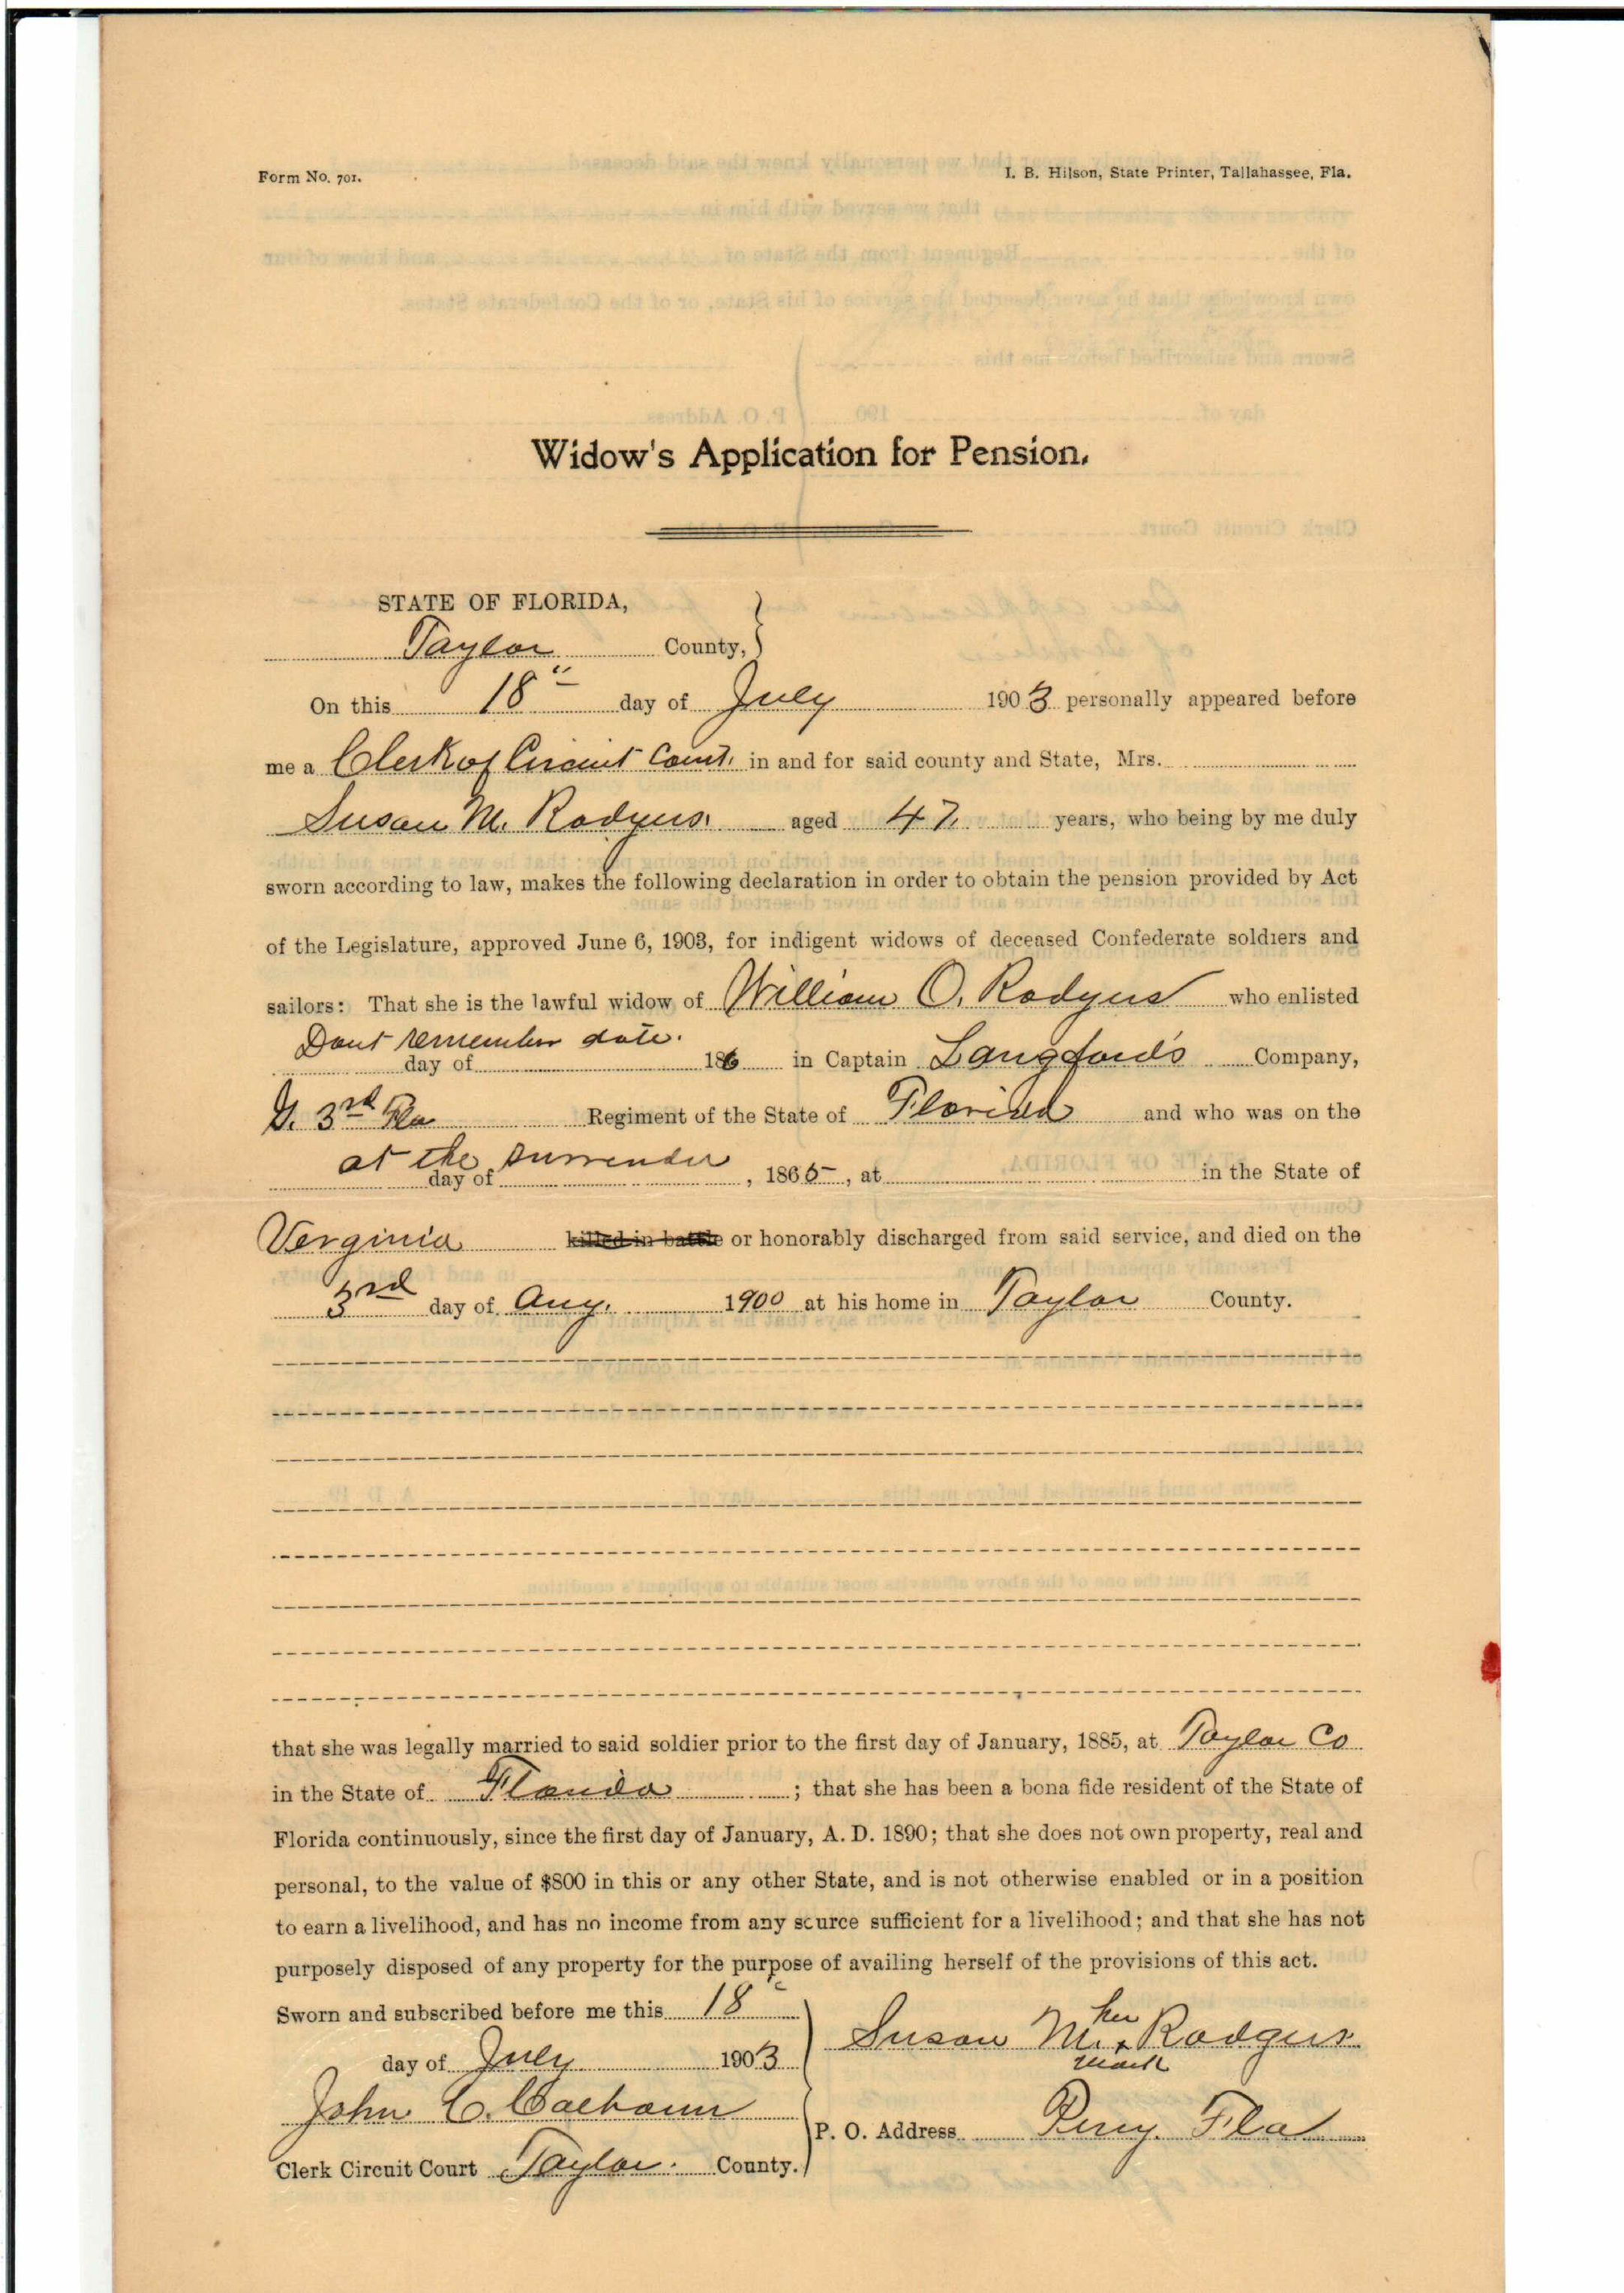 Form No. 701.
I. B. Hilson, State Printer, Tallahassee, Fla.
Widow's Application for Pension.
STATE OF FLORIDA,
Taylor County,
On this 18" day of July 1903 personally appeared before
me a Clerk of Circuit Court, in and for said county and State, Mrs.
Susan M. Rodgers. aged 47 years, who being by me duly
sworn according to law, makes the following declaration in order to obtain the pension provided by Act
of the Legislature, approved June 6, 1903, for indigent widows of deceased Confederate soldiers and
sailors: That she is the lawful widow of William O. Rodgers who enlisted
Dont remember date.
day of 186 in Captain Langford's Company,
G. 3rd Fla Regiment of the State of Florida and who was on the
at the surrender
day of , 1865, at in the State of
Verginia killed in battle or honorably discharged from said service, and died on the
3rd day of Aug. 1900 at his home in Taylor County.
that she was legally married to said soldier prior to the first day of January, 1885, at Taylor Co
in the State of Florida ; that she has been a bona fide resident of the State of
Florida continuously, since the first day of January, A. D. 1890; that she does not own property, real and
personal, to the value of $800 in this or any other State, and is not otherwise enabled or in a position
to earn a livelihood, and has no income from any scurce sufficient for a livelihood; and that she has not
purposely disposed of any property for the purpose of availing herself of the provisions of this act.
Sworn and subscribed before me this 18"
day of July 1903
John C. Calhoun
Clerk Circuit Court Taylor. County.
her
Susan M. x Rodgers.
mark
P. O. Address Perry. Fla